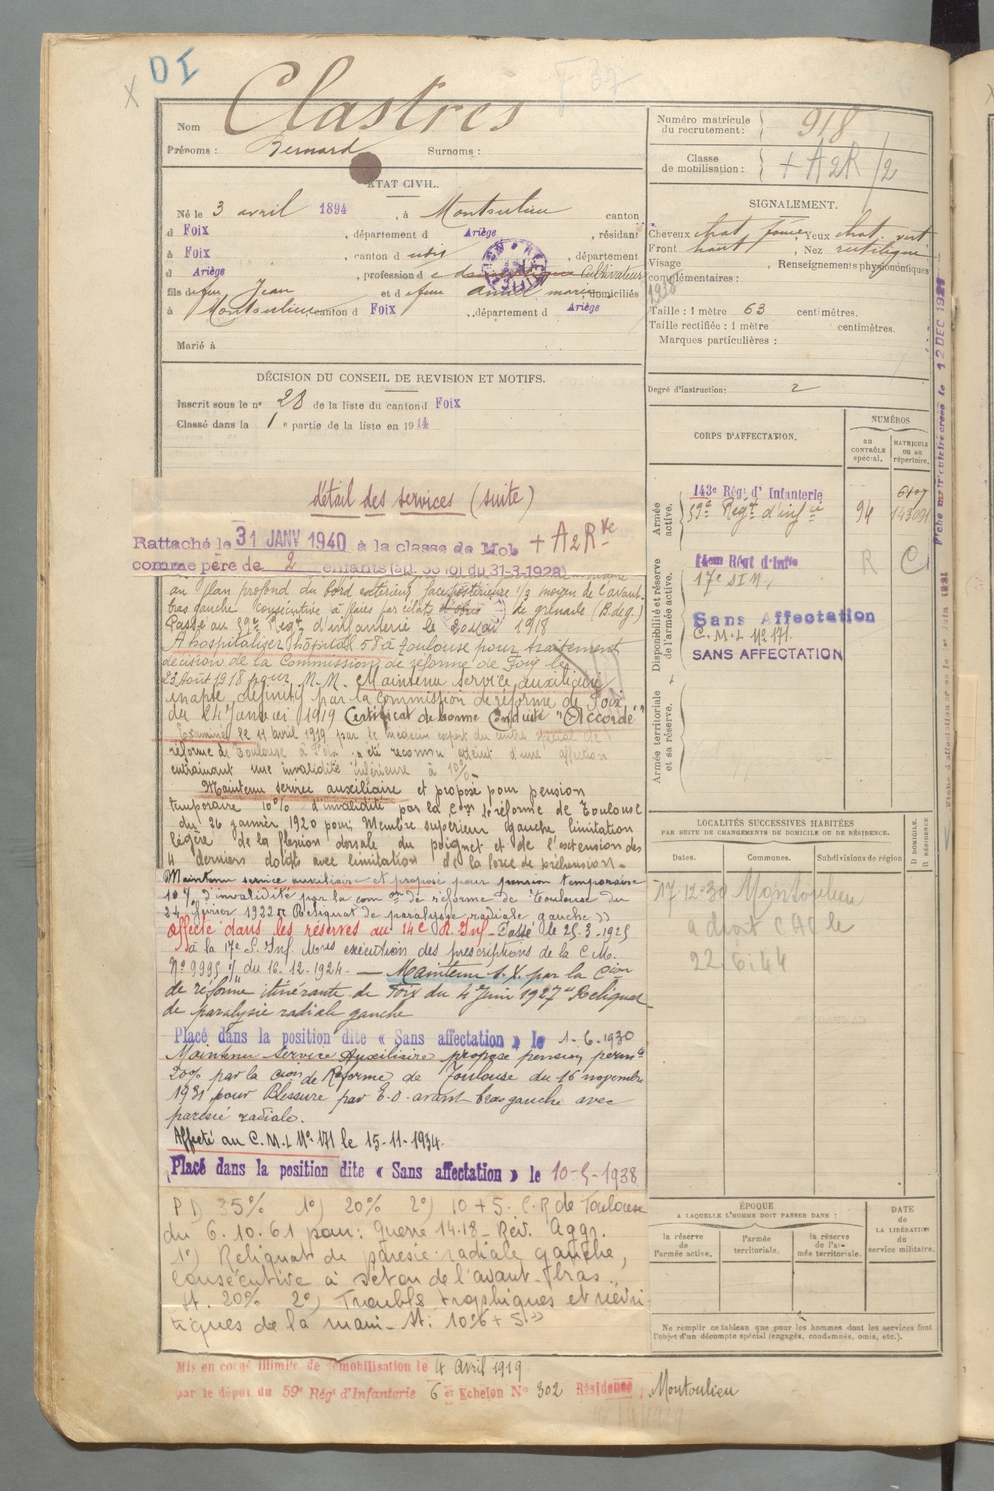 DI
Nom Clastres
Prénoms : Bernard Surnoms :
ÉTAT CIVIL.
Né le 3 avril 1894, à Montoulieu canton
d Foix, département d Ariège, résidant
à Foix, canton d udit, département
d Ariège, profession de cultivateur
fils de feu Jean et de feue marie domiciliés
à Montoulieu canton d Foix, département d Ariège
Marié à
DÉCISION DU CONSEIL DE REVISION ET MOTIFS.
Inscrit sous le n° 28 de la liste du canton d Foix
Classé dans la 1e partie de la liste en 1914
détail des services (suite)
Rattaché le 31 JANV 1940 à la classe de Mob + A2Rve
comme père de 2 enfants (du 31-3-1928)
au plan profond du bord extérieur face postérieure 1/3 moyen de l'avant-
bras gauche consécutive à plaies par éclats de grenade (B.deg.)
Passé au 59e Regt d'infanterie le 1918
A hospitaliser hôpital 58 à Toulouse pour traitement
décision de la Commission de réforme de Foix du
23 Août 1918 Maintenu service auxiliaire
inapte définitif par la Commission de réforme de Foix
du 24 Janvier 1919 Certificat de bonne Conduite "Accordé"
Examiné le 11 avril 1919 par le médecin expert du centre spécial de
réforme de Toulouse à Foix a été reconnu atteint d'une affection
entraînant une invalidité inférieure à 10%
Maintenu service auxiliaire et proposé pour pension
temporaire 10% d'invalidité par la Com de réforme de Toulouse
du 26 janvier 1920 pour Membre supérieur gauche limitation
légère de la flexion dorsale du poignet et de l'extension des
4 derniers doigts avec limitation de la force de préhension -
Maintenu service auxiliaire et proposé pour pension temporaire
10% d'invalidité par la com on de réforme de Toulouse du
24 février 1922 Reliquat de paralysie radiale gauche »
Affecté dans les réserves au 14e R. Inf - Passé le 25-3-1925
à la 17e S. Inf. Mres exécution des prescriptions de la C.M.
N° 9995 du 16.12.1924. — Maintenu S.X. par la Cion
de réforme itinérante de Foix du 4 Juin 1927 "Reliquat
de paralysie radiale gauche
Placé dans la position dite « Sans affectation » le 1-6-1930
Maintenu Service Auxiliaire propose pension permte
20% par la Cion de Réforme de Toulouse du 16 novembre
1931 pour Blessure par E.O. avant-bras gauche avec
parésie radiale.
Affecté au C.M.I. N° 171 le 15-11-1934.
Placé dans la position dite « Sans affectation » le 10-5-1938
P D 35% 1°) 20% 2°) 10+5. C.R de Toulouse
du 6.10.61 pour: Guerre 14.18 - Rév. Aggr.
1°) Reliquat de parésie radiale gauche,
consécutive à séton de l'avant-bras.
St. 20% 2°) Troubles trophiques et névri-
tiques de la main - St: 10% + 5 »
Mis en congé illimité de démobilisation le 4 Avril 1919
par le dépôt du 59e Régt d'Infanterie 6e Echelon N° 302 Résidence Montoulieu
Numéro matricule du recrutement : 918
Classe de mobilisation : + A2R/2
SIGNALEMENT.
Cheveux chat. foncé Yeux chat. vert
Front haut, Nez rectiligne
Visage, Renseignements physionomiques
complémentaires :
Taille : 1 mètre 63 centimètres.
Taille rectifiée : 1 mètre centimètres.
Marques particulières :
Degré d'instruction : 2
CORPS D'AFFECTATION.
NUMÉROS
au CONTRÔLE spécial.
MATRICULE ou au répertoire.
Armée active.
143e Régt d'Infanterie
59e Regt d'infie 94
Disponibilité et réserve de l'armée active.
14eme Régt d'Infie R C
17e S I M.
Sans Affectation
C. M. I. N° 171.
SANS AFFECTATION
Armée territoriale et sa réserve
LOCALITÉS SUCCESSIVES HABITÉES
PAR SUITE DE CHANGEMENTS DE DOMICILE OU DE RÉSIDENCE.
Dates. Communes. Subdivisions de région
D. DOMICILE.
R. RÉSIDENCE
17-12-30 Montoulieu
a droit C.A.C le
22.6.44
ÉPOQUE
A LAQUELLE L'HOMME DOIT PASSER DANS :
la réserve de l'armée active.
l'armée territoriale.
la réserve de l'armée territoriale.
DATE de LA LIBÉRATION du service militaire.
Ne remplir ce tableau que pour les hommes dont les services font
l'objet d'un décompte spécial (engagés, condamnés, omis, etc.).